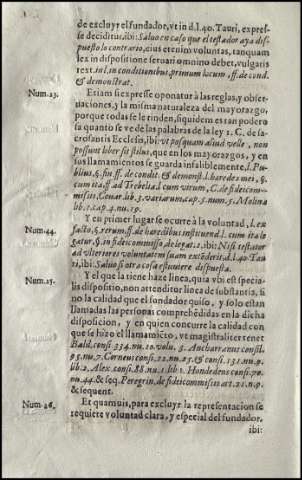 de excluyr el fundador, vt in d.l.40. Tauri, expresse
deciditur, ibi: Saluo en caso que el testador aya dispuesto
lo contrario, cius etenim voluntas, tanquam
lex in dispositione seruari omnino debet, vulgaris
text. in l. in conditionibus primum locum ff. de cond.
& demonstrat.
Num.23. Etiam si expresse oponatur à las reglas, y obseruaciones,
y la misma naturaleza del mayorazgo,
porque todas se le rinden, siquidem es tan poderosa
quanto se ve de las palabras de la ley 1. C. de sacrosantis
Ecclesiis, ibi: vt posquam aliud velle, non
possunt liber sit stilus, que en los mayorazgos, y en
sus llamamientos se guarda infaliblemente, l. Publius,
§. fin ff. de condit. & demonst. l. haeredes mei, §.
cum ita, ff. ad Trebel. l. cum virum, C. de fideicommissis,
Couar. lib. 3. variarum, cap. 5. num. 5. Molina
lib. 1. cap. 4. nu. 19.
Num.44. Y en primer lugar se ocurre à la voluntad, l. ex
facto, §. rerum, ff. de haeredibus instituend. l. cum ita legatur,
§. in fideicommisso, de legat. 2. ibi: Nisi testator
ad vlteriores voluntatem suam extēderit, d. l. 40. Tauri,
ibi: Saluo si otra cosa estuuiere dispuesta.
Num.25. Y el que la tiene haze linea, quia vbi est specialis
dispositio, non attenditur linea de substantis, si
no la calidad que el fundador quiso, y solo estan
llamadas las personas comprehēdidas en la dicha
disposicion, y en quien concurre la calidad con
que se hizo el llamamiēto, vt magistraliter tenet
Bald. consi. 334. nu. 10. volu. 3. Ancharranus consil.
95. nu. 7. Corneus consi. 22. nu. 25. & consi. 131. nu. 9.
lib. 2. Alex. consi. 88. nu. 1. lib. 1. Hondedeus consi. 70.
nu. 44. & seq. Peregrin. de fideicommissis art. 21. nu. 9.
& sequent.
Num.26. Et quamuis, para excluyr la representacion se
requiere voluntad clara, y especial del fundador,
ibi: